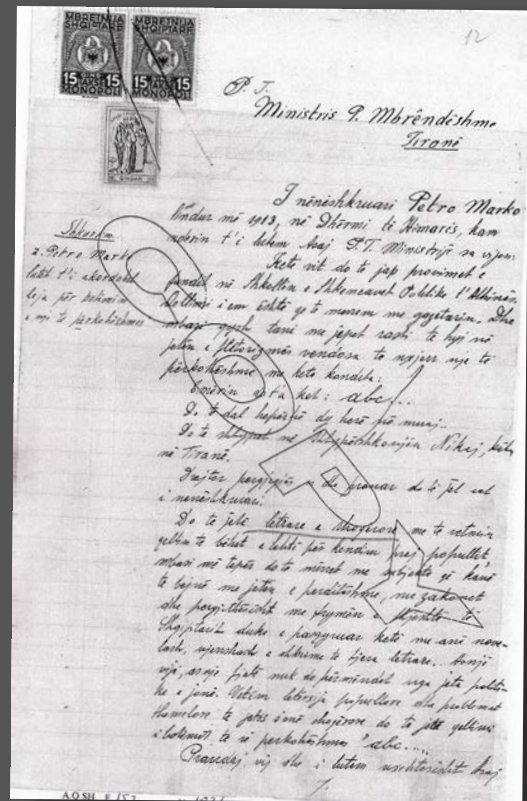 12
MBRETNIJA SHQIPTARE
15 15
MONOPOLI
MBRETNIJA SHQIPTARE
15 15
MONOPOLI
P. T.
Ministris P. Mbrêndëshme
Tiranë
I nënëshkruari Petro Marko
lindur më 1913, në Dhërmi të Himarës, kam
t'i lutem asaj P.T. Ministrije sa vijon:
Shkurtim
z. Petro Marko
lutet t'i akordohet
leja për botimin
e një të përkohëshme
Këtë vit do të jap provimet e
fundit në Shkollën e Shkencavet Politike t'Athinës.
Qëllimi i em është që të merrem me gazetarin. Dhe
mbasi gjysh tani me jepet rasti të hyj në
jetën e vendosa të nxjerr një të
përkohëshme me këto kondita:
Emërin do t'a ket: abc...
Do të dal hepërhë dy herë në muaj.
Do të shtypet me Shtypshkronjën Nikaj, këtu
në Tiranë.
Drejtor përgjegjës e dhe pronar do të jet vet
i nënëshkruari.
Do të jetë letrare e shoqërore, me të vetmin
qëllim të bëhet e lehtë për këndim prej popullit,
mbasi më tepër do të mirret me subjekte që kanë
të bëjnë me jetën e përditëshme, me zakonet
dhe përgjithësisht me frymën e thjeshtë të
Shqiptarit duke e pasqyruar këtë me anë nove-
lash, vjershash e shkrime të tjera letrare. Asnjë
vijë, asnjë fjalë nuk do përmendet nga jeta politi-
ke e jonë. Vetëm letërsija popullore dhe problemet
themelore të jetës sonë shoqërore do të jetë qëllimi
i botimit të së përkohëshmes "abc....
Prandaj, vij dhe i lutem nxehtësisht Asaj
COPY
AQSH F.152